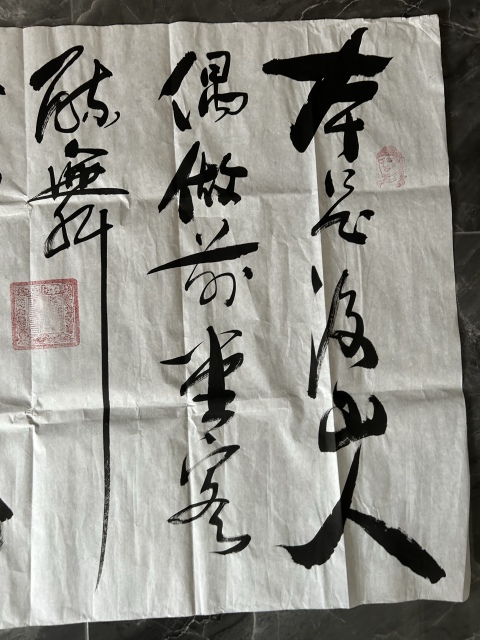 本是后山人
偶做前堂客
醉舞